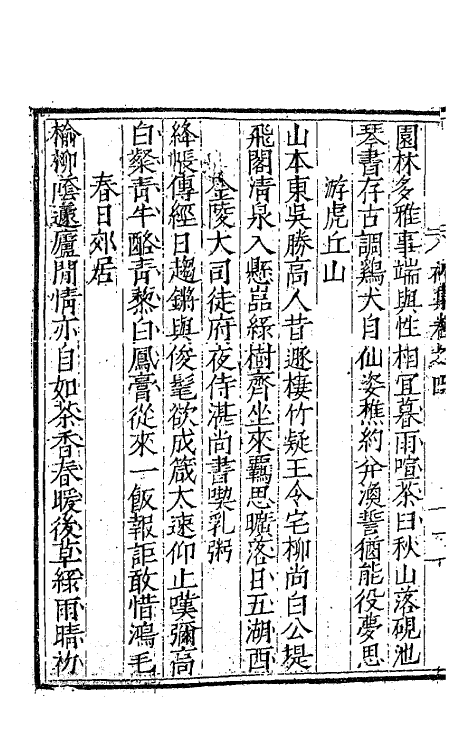 園林多雅事端與性相宜暮雨喧茶臼秋山落硯池
琴書存古調鷄犬自仙姿樵約幷漁誓猶能役夢思
游虎丘山
山本東吳勝高人昔遯棲竹疑王令宅柳尚白公堤
飛閣清泉入懸嵓綠樹齊坐來羈思曠落日五湖西
金陵大司徒府夜侍湛尚書喫乳粥
絳帳傳經日趨鏘與俊髦欲成箴太速仰止嘆彌高
白粲青牛酪青藜白鳳膏從來一飯報詎敢惜鴻毛
春日郊居
榆柳蔭邃廬閒情亦自如茶香春暖後草綠雨晴初
集卷之四